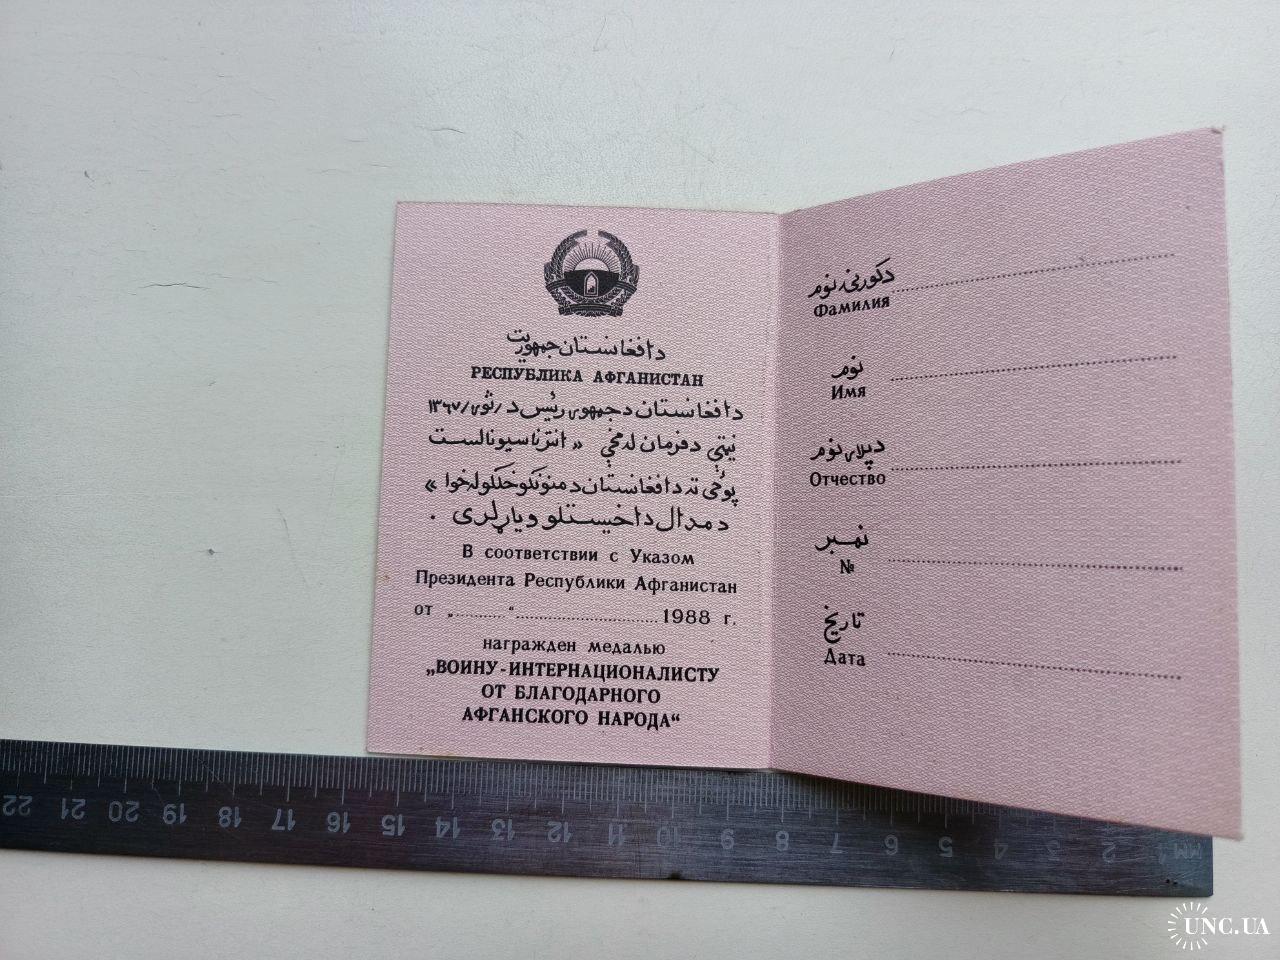 د افغانستان جمهوریت
РЕСПУБЛИКА АФГАНИСТАН
د افغانستان د جمهوری رئیس د /ثور/ ۱۳۶۷
نیټې د فرمان له مخې « انترناسیونالست
پوځی ته د افغانستان د منونکو خلکو له خوا »
د مدال د اخیستلو ویاړ لری .
В соответствии с Указом
Президента Республики Афганистан
от „..........“.............................. 1988 г.
награжден медалью
„ВОИНУ-ИНТЕРНАЦИОНАЛИСТУ
ОТ БЛАГОДАРНОГО
АФГАНСКОГО НАРОДА“
د کورنۍ نوم
Фамилия
نوم
Имя
د پلار نوم
Отчество
نمبر
№
تاریخ
Дата
22 21 20 19 18 17 16 15 14 13 12 11 10 9 8 7 6 5 4 3 2 1 мм
UNC.UA